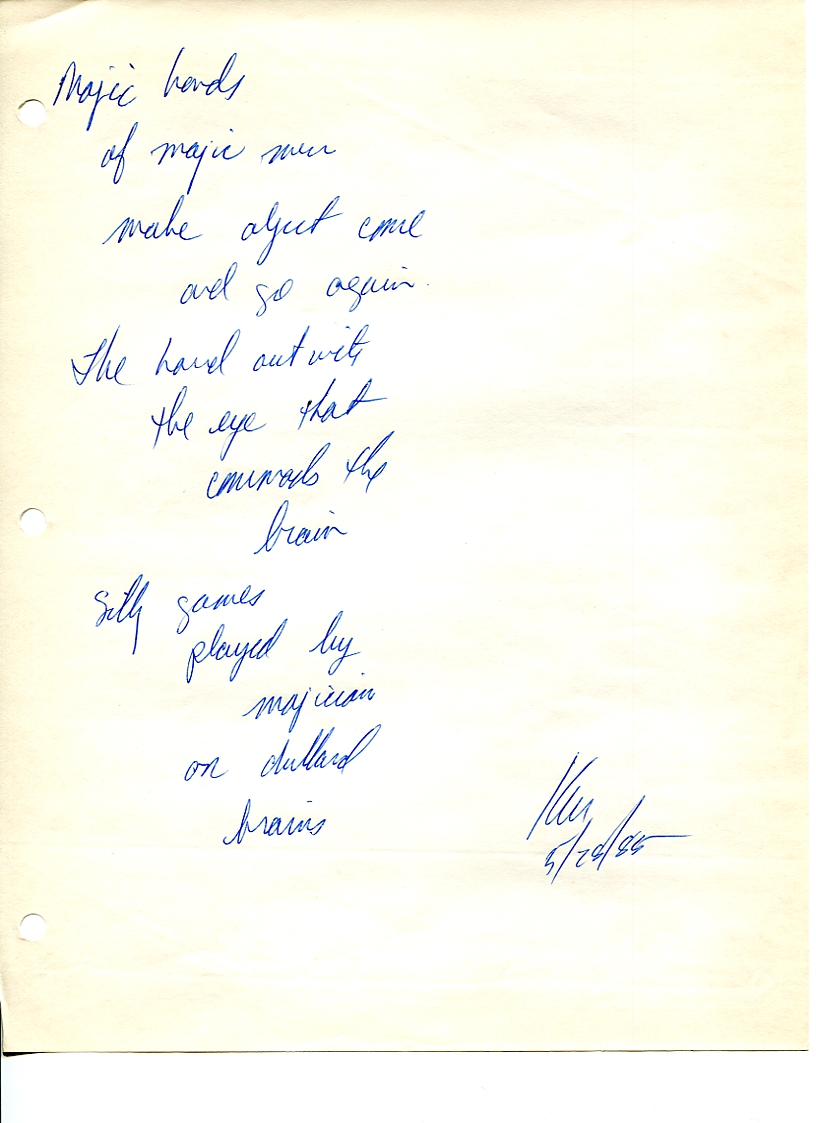 Majic hands
of majic men
make object come
and go again.
The hand outwits
the eye that
commads the
brain
Silly games
played by
majician
on dullard
brains
Ken
5/28/85